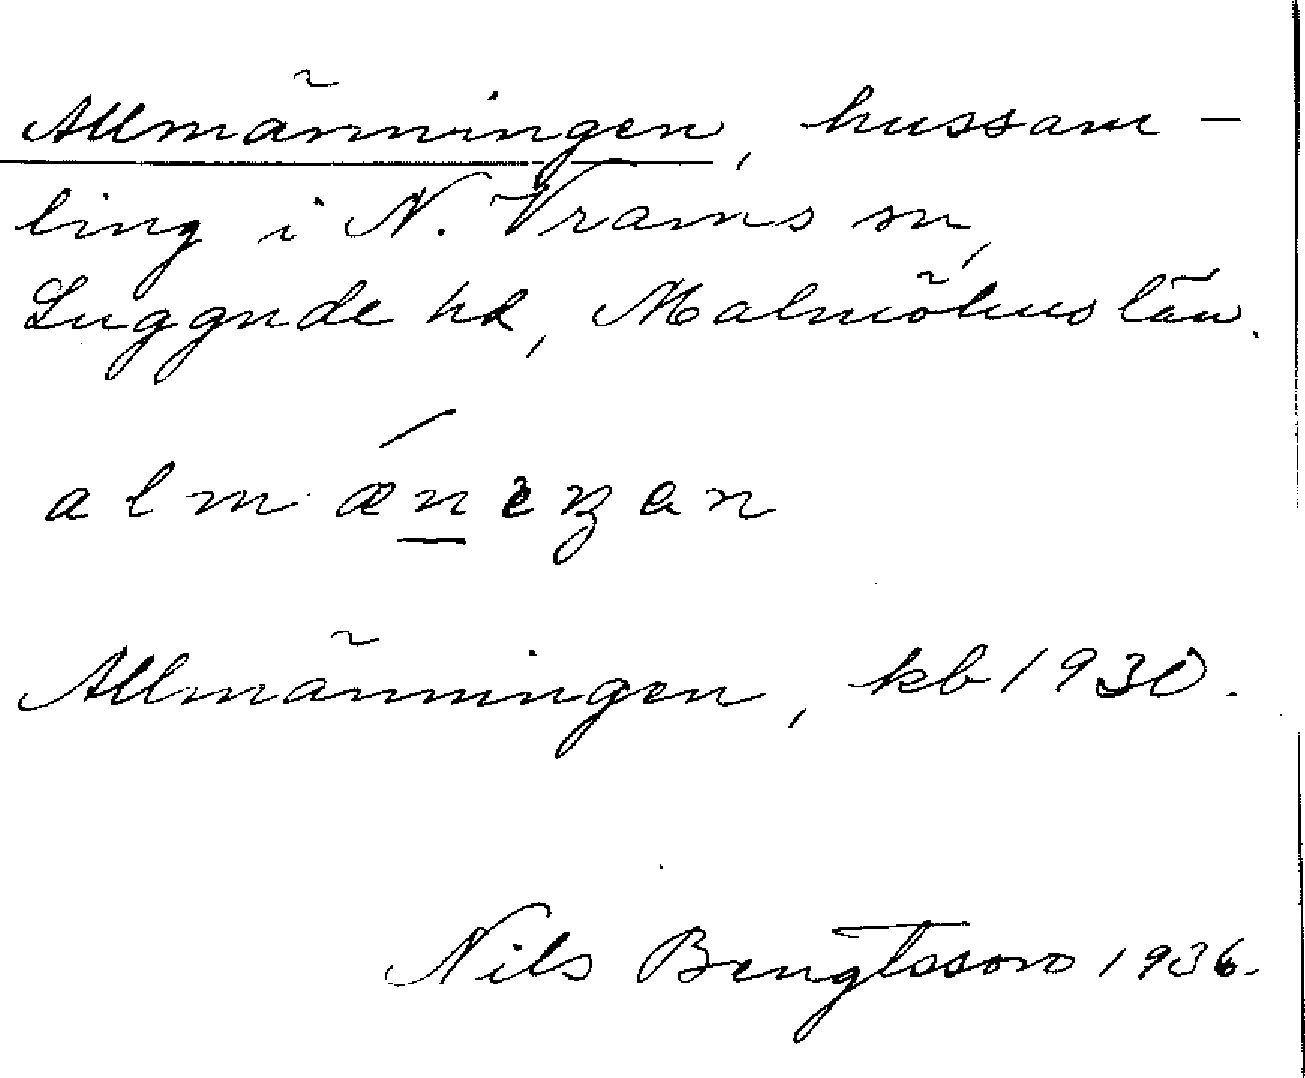 Allmänningen, hussam-
ling i N. Vrams sn,
Luggude hd, Malmöhus län.
Allmänningen, kb 1930.
Nils Bengtsson 1936.